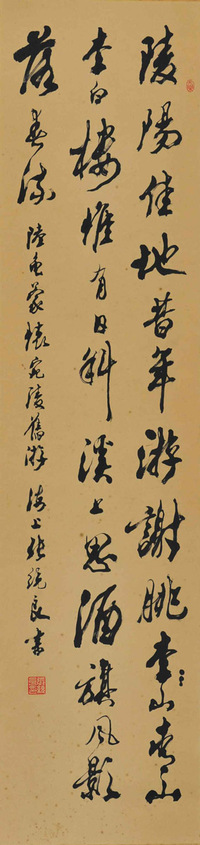 陵陽佳地昔年游謝朓李山青山
李白樓惟有日斜溪上思酒旗風影
落春流 陸龜蒙懷宛陵舊游 海上張良書